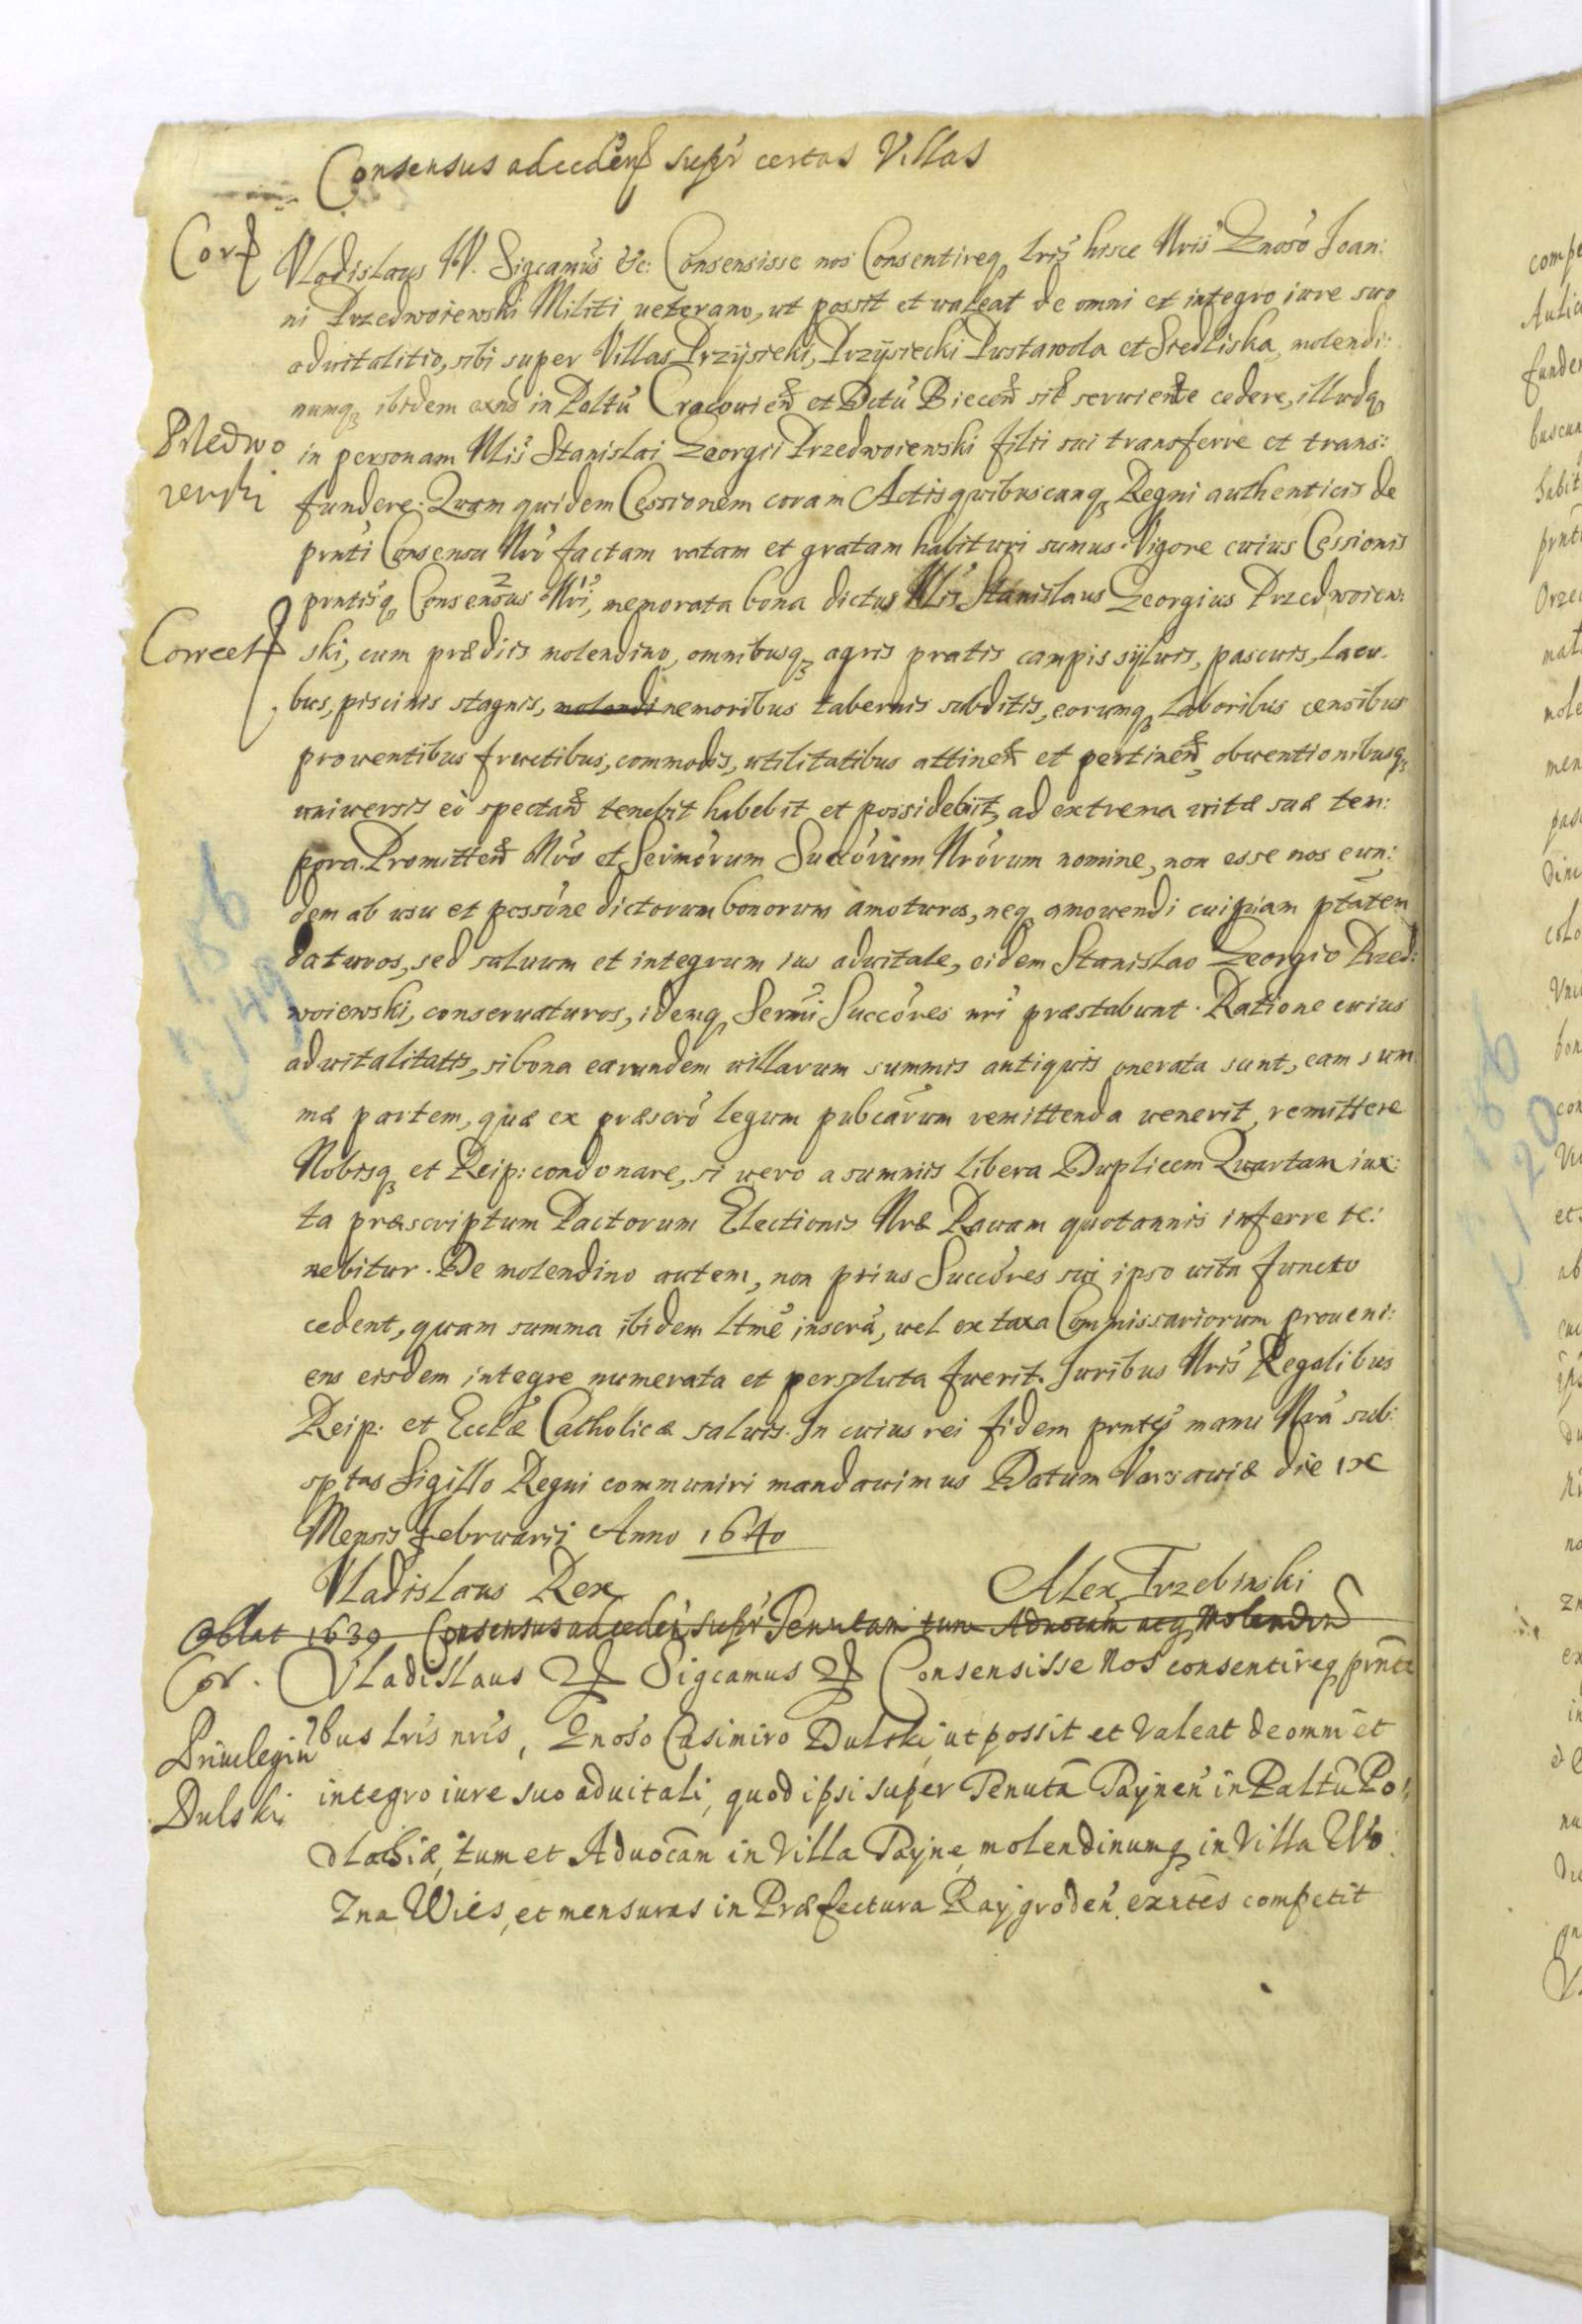 Consensus ad cedend supr certas Villas
Cor
Vladislaus IV. Sigcamus &c: Consensisse nos Consentireq lris hisce Nris Gnoso Joan:
ni Przedwoiewski Militi veterano, ut possit et valeat de omni et integro iure suo
advitalitio, sibi super Villas Przÿsieki, Przÿsiecki Pustawola et Siedliska, molendi:
numq ibidem exns in Paltu Cracovien et Dctu Biecen sib serviente cedere, illudq
Przedwo
iewski
in personam Nlis Stanislai Georgii Przedwoiewski filii sui transferre et trans:
fundere. Quam quidem Cessionem coram Actis quibuscunq Regni authenticis de
prnti Consensu Nro factam ratam et gratam habituri sumus. Vigore cuius Cessionis
prntisq Consensus Nri, memorata bona dictus Nlis Stanislaus Georgius Przedwoiew:
Correct
ski, cum prædiis molendino, omnibusq agris pratis campis sylvis, pascuis, lacu.
bus, piscinis stagnis, molendi nemoribus tabernis subditis, eorumq laboribus censibus
proventibus fructibus, commodis, utilitatibus attinen et pertinen, obventionibusq
universis eo spectan tenebit habebit et possidebit, ad extrema vitæ suæ tem:
pora. Promitten Nro et Sermorum Succorum Nrorum nomine, non esse nos eun:
dem ab usu et possione dictorum bonorum amoturos, neq amovendi cuipiam ptatem
daturos, sed salvum et integrum ius advitale, eidem Stanislao Georgio Przed:
woiewski, conservaturos, idemq Sermi Succores nri præstabunt. Ratione cuius
advitalitatis, si bona earundem villarum summis antiquis onerata sunt, eam sum
mæ partem, quæ ex præscro legum pubcarum remittenda venerit, remittere
Nobisq et Reip: condonare, si vero a summis libera Duplicem Quartam iux:
ta præscriptum Pactorum Electionis Nræ Ravam quotannis inferre te:
nebitur. De molendino autem, non prius Succores sui ipso vita functo
cedent, quam summa ibidem ltme inscra, vel ex taxa Commissariorum proveni:
ens eisdem integre numerata et persoluta fuerit. Juribus Nris Regalibus
Reip: et Ecclæ Catholicæ salvis. In cuius rei fidem prntes manu Nra sub:
sptas Sigillo Regni communiri mandavimus Datum Varsaviæ die ix
Mensis Februarii Anno 1640
Vladislaus Rex
Alex Trzebinski
Oblat 1639 Consensus ad ceden supr Tenutam tum Advocam acq Molendin
Cor. Vladislaus Sigcamus Consensisse Nos consentireq prnti
Privilegiu
Dulski
bus lris nris, Gnoso Casimiro Dulski, ut possit et valeat de omni et
integro iure suo advitali, quod ipsi super Tenuta Raÿnen in Paltu Po:
dlachiæ, tum et Advocam in Villa Raÿne, molendinumq in Villa Wo:
zna Wies, et mensuras in Præfectura Raÿgroden exntes competit